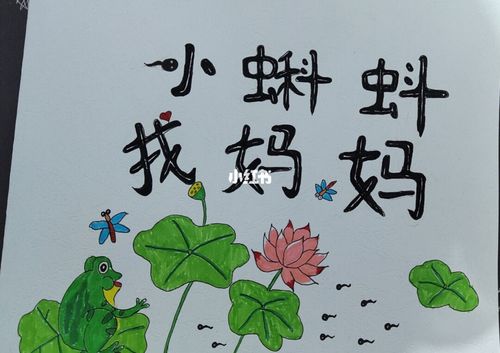 小蝌蚪
找妈妈
小红书